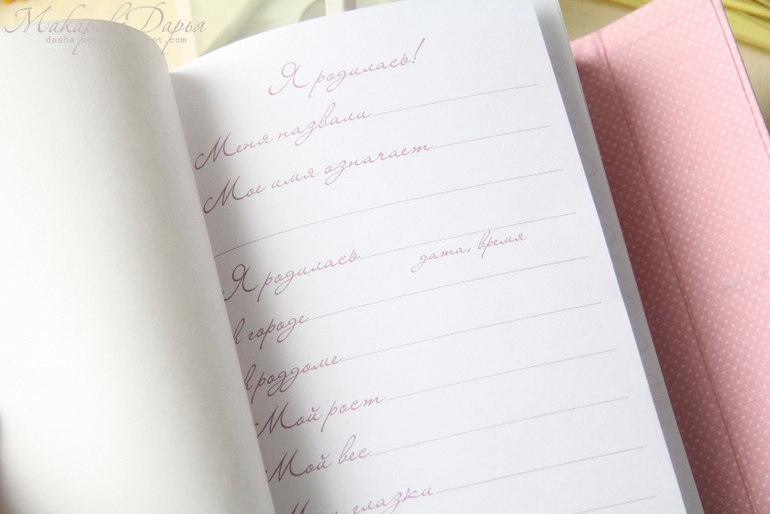 Макарова Дарья
Я родилась!
Меня назвали
Мое имя означает
Я родилась
дата, время
в городе
в роддоме
Мой рост
Мой вес
глазки